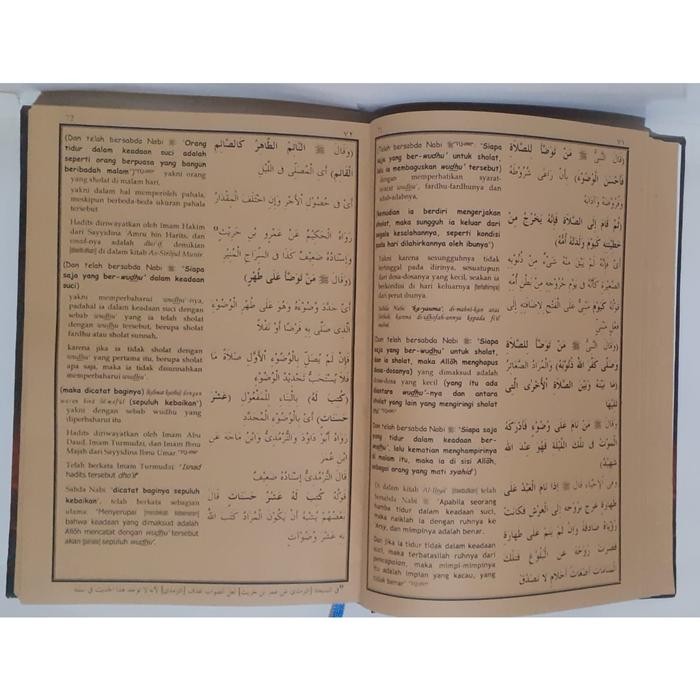 ٧١
(Telah bersabda Nabi ﷺ "Siapa
saja yang ber-wudhu' untuk sholat,
lalu ia membaguskan wudhu' tersebut)
dengan memperhatikan syarat-
syarat wudhu', fardhu-fardhunya dan
adab-adabnya,
(kemudian ia berdiri mengerjakan
sholat, maka sungguh ia keluar dari
segala kesalahannya, seperti kondisi
pada hari dilahirkannya oleh ibunya")
Yakni karena sesungguhnya tidak
tertinggal pada dirinya, sesuatupun
dari dosa-dosanya yang kecil, seakan ia
berkondisi di hari keluarnya
dari perut ibunya.
Sabda Nabi "ka-yauma"; di-mabni-kan atas
fathah, karena di-idhofah-annya kepada fi'il
(Dan telah bersabda Nabi ﷺ "Siapa
saja yang ber-wudhu' untuk sholat,
dan ia sholat, maka Allôh menghapus
dosa-dosanya) yang dimaksud adalah
dosa-dosa yang kecil (yang itu ada
diantara wudhu'-nya dan antara
sholat yang lain yang mengiringi sholat
(Dan telah bersabda Nabi ﷺ "Siapa saja
yang tidur dalam keadaan ber-
wudhu', lalu kematian menghampirinya
di malam itu, maka ia di sisi Allôh,
sebagai orang yang mati syahid")
Di dalam kitab Al-Ihya' telah
bersabda Nabi ﷺ "Apabila seorang
hamba tidur dalam keadaan suci,
maka naiklah ia dengan ruhnya ke
'Arsy, dan mimpinya adalah benar.
Dan jika ia tidur tidak dalam keadaan
suci, maka terbataslah ruhnya dari
pencapaian, maka mimpi-mimpinya
itu adalah impian yang kacau, yang
tidak benar"
(قَالَ النَّبِيُّ ﷺ مَنْ تَوَضَّأَ لِلصَّلَاةِ
فَأَحْسَنَ الْوُضُوْءَ) بِأَنْ رَاعَى شُرُوْطَهُ
وَفُرُوْضَهُ وَآدَابَهُ
(ثُمَّ قَامَ إِلَى الصَّلَاةِ فَإِنَّهُ يَخْرُجُ مِنْ
خَطِيْئَتِهِ كَيَوْمَ وَلَدَتْهُ أُمُّهُ)
أَيْ فَإِنَّهُ لَمْ يَبْقَ مِنْهُ شَيْءٌ مِنْ ذُنُوْبِهِ
الصَّغِيْرَةِ كَأَنَّهُ فِي يَوْمِ خُرُوْجِهِ مِنْ بَطْنِ أُمِّهِ
قَوْلُهُ كَيَوْمَ مَبْنِيٌّ عَلَى الْفَتْحِ لِإِضَافَتِهِ إِلَى
(وَقَالَ النَّبِيُّ ﷺ مَنْ تَوَضَّأَ لِلصَّلَاةِ
وَصَلَّى كَفَّرَ اللهُ ذُنُوْبَهُ) وَالْمُرَادُ الصَّغَائِرُ
(مَا بَيْنَهُ وَبَيْنَ الصَّلَاةِ الْأُخْرَى الَّتِي
(وَقَالَ ﷺ مَنْ نَامَ عَلَى وُضُوْءٍ فَأَدْرَكَهُ
الْمَوْتُ فِي تِلْكَ اللَّيْلَةِ فَهُوَ عِنْدَ اللهِ
شَهِيْدٌ)
وَفِي الْإِحْيَاءِ قَالَ ﷺ إِذَا نَامَ الْعَبْدُ عَلَى
طَهَارَةٍ عُرِجَ بِرُوْحِهِ إِلَى الْعَرْشِ فَكَانَتْ
رُؤْيَاهُ صَادِقَةً وَإِنْ لَمْ يَنَمْ عَلَى طَهَارَةٍ
قَصُرَتْ رُوْحُهُ عَنِ الْبُلُوْغِ فَتِلْكَ
الْمَنَامَاتُ أَضْغَاثُ أَحْلَامٍ لَا تَصْدُقُ
72
٧٢
(Dan telah bersabda Nabi ﷺ "Orang
tidur dalam keadaan suci adalah
seperti orang berpuasa yang bangun
beribadah malam") yakni orang
yang sholat di malam hari,
yakni dalam hal memperoleh pahala,
meskipun berbeda-beda ukuran pahala
tersebut
Hadits diriwayatkan oleh Imam Hakim
dari Sayyidina 'Amru bin Harits, dan
sanad-nya adalah dho'if, demikian
di dalam kitab As-Sirôjul Munir.
(Dan telah bersabda Nabi ﷺ "Siapa
saja yang ber-wudhu' dalam keadaan
suci)
yakni memperbaharui wudhu'-nya,
padahal ia dalam keadaan suci dengan
sebab wudhu' yang ia telah sholat
dengan wudhu' tersebut, berupa sholat
fardhu atau sholat sunnah,
karena jika ia tidak sholat dengan
wudhu' yang pertama itu, berupa sholat
apa saja, maka ia tidak disunnahkan
memperbaharui wudhu'.
(maka dicatat baginya)
(sepuluh kebaikan")
yakni dengan sebab wudhu yang
diperbaharui itu.
Hadits diriwayatkan oleh Imam Abu
Daud, Imam Turmudzi, dan Imam Ibnu
Majah dari Sayyidina Ibnu Umar.
Telah berkata Imam Turmudzi "Isnad
hadits tersebut dho'if"
Sabda Nabi "dicatat baginya sepuluh
kebaikan", telah berkata sebagian
ulama: "Menyerupai
bahwa keadaan yang dimaksud adalah
Allôh mencatat dengan wudhu' tersebut
akan sepuluh wudhu'.
(وَقَالَ ﷺ النَّائِمُ الطَّاهِرُ كَالصَّائِمِ
الْقَائِمِ) أَيْ الْمُصَلِّي فِي اللَّيْلِ
أَيْ فِي حُصُوْلِ الْأَجْرِ وَإِنِ اخْتَلَفَ الْمِقْدَارُ
رَوَاهُ الْحَكِيْمُ عَنْ عَمْرِو بْنِ حَرِيْثٍ
وَإِسْنَادُهُ ضَعِيْفٌ كَذَا فِي السِّرَاجِ الْمُنِيْرِ
(وَقَالَ ﷺ مَنْ تَوَضَّأَ عَلَى طُهْرٍ)
أَيْ جَدَّدَ وُضُوْءَهُ وَهُوَ عَلَى طُهْرِ الْوُضُوْءِ
الَّذِي صَلَّى بِهِ فَرْضًا أَوْ نَفْلًا
فَإِنْ لَمْ يُصَلِّ بِالْوُضُوْءِ الْأَوَّلِ صَلَاةً مَا
فَلَا يُسْتَحَبُّ تَجْدِيْدُ الْوُضُوْءِ
(كُتِبَ لَهُ) بِالْبِنَاءِ لِلْمَفْعُوْلِ (عَشْرُ
حَسَنَاتٍ) أَيْ بِالْوُضُوْءِ الْمُجَدَّدِ
رَوَاهُ أَبُوْ دَاوُدَ وَالتِّرْمِذِيُّ وَابْنُ مَاجَهْ عَنِ
ابْنِ عُمَرَ
قَالَ التِّرْمِذِيُّ إِسْنَادُهُ ضَعِيْفٌ
قَوْلُهُ كُتِبَ لَهُ عَشْرُ حَسَنَاتٍ قَالَ
بَعْضُهُمْ يُشْبِهُ أَنْ يَكُوْنَ الْمُرَادُ كَتَبَ اللهُ
بِهِ عَشْرَ وُضُوْآتٍ